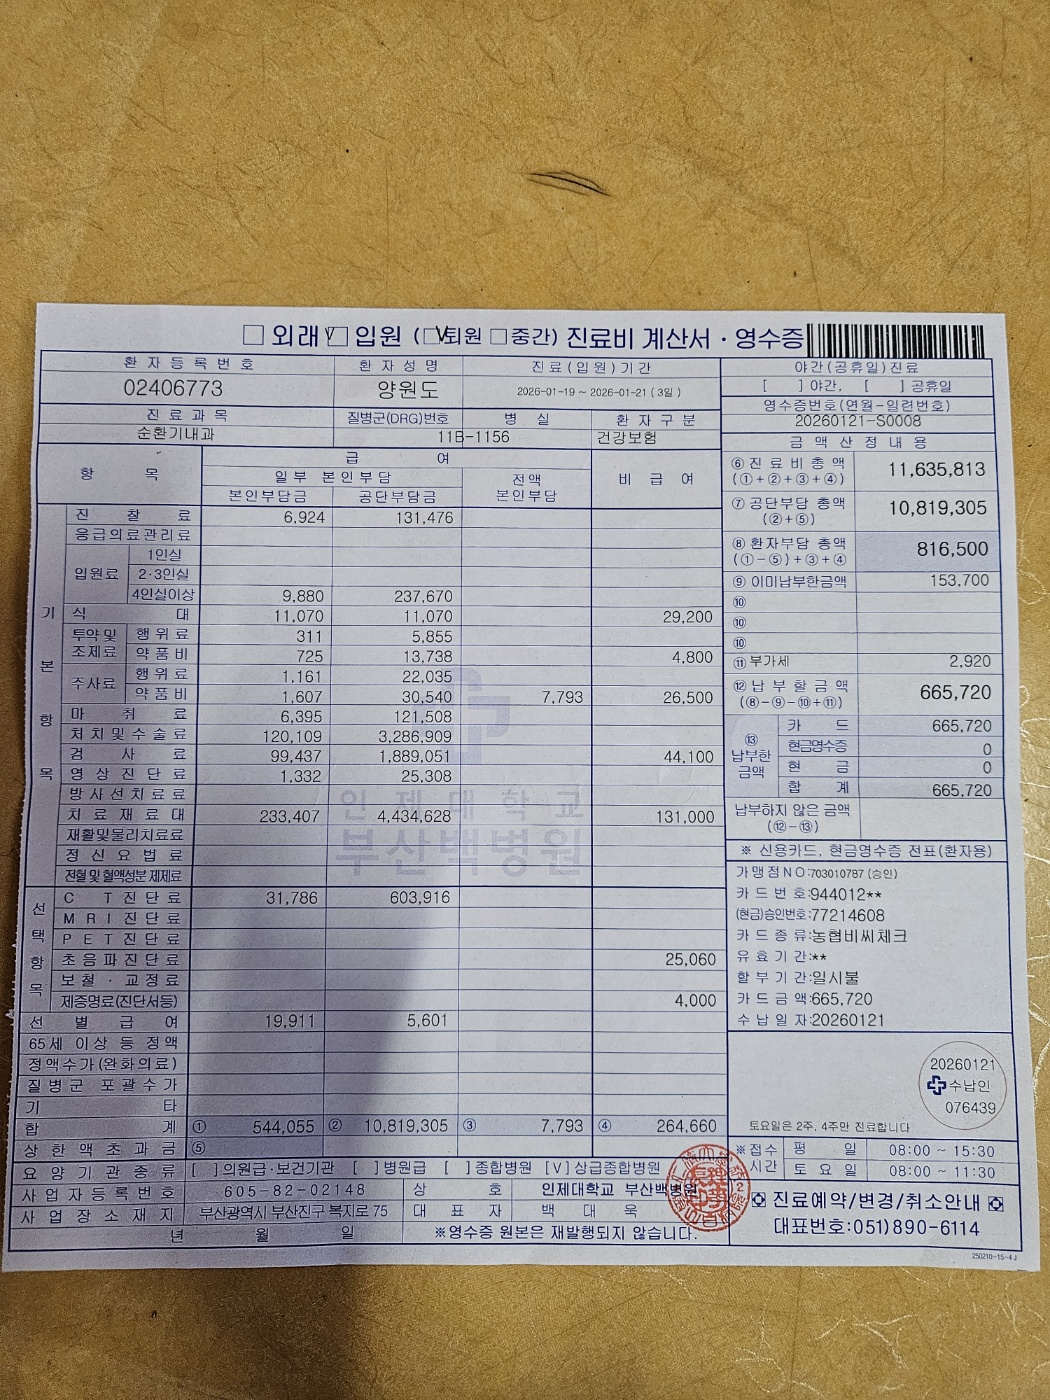 □ 외래 ☑ 입원 (☑퇴원 □중간) 진료비 계산서 · 영수증
환자등록번호 환자성명 진료(입원)기간 야간(공휴일)진료
02406773 양원도 2026-01-19 ~ 2026-01-21 ( 3일 ) [ ] 야간, [ ] 공휴일
진료과목 질병군(DRG)번호 병실 환자구분 영수증번호(연월-일련번호)
순환기내과 11B-1156 건강보험 20260121-S0008
항목 급여 비급여 금액산정내용
일부 본인부담 전액 본인부담
본인부담금 공단부담금
⑥진료비총액 (①+②+③+④) 11,635,813
⑦공단부담 총액 (②+⑤) 10,819,305
⑧환자부담 총액 (①-⑤)+③+④ 816,500
⑨이미납부한금액 153,700
⑩
⑩
⑩
⑪부가세 2,920
⑫납부할금액 (⑧-⑨-⑩+⑪) 665,720
⑬납부한금액 카드 665,720
현금영수증 0
현금 0
합계 665,720
납부하지 않은 금액 (⑫-⑬)
기본항목
진찰료 6,924 131,476
응급의료관리료
입원료 1인실
2·3인실
4인실이상 9,880 237,670
식대 11,070 11,070 29,200
투약및조제료 행위료 311 5,855
약품비 725 13,738 4,800
주사료 행위료 1,161 22,035
약품비 1,607 30,540 7,793 26,500
마취료 6,395 121,508
처치및수술료 120,109 3,286,909
검사료 99,437 1,889,051 44,100
영상진단료 1,332 25,308
방사선치료료
치료재료대 233,407 4,434,628 131,000
재활및물리치료료
정신요법료
전혈및혈액성분제제료
인제대학교
부산백병원
선택항목
CT진단료 31,786 603,916
MRI진단료
PET진단료
초음파진단료 25,060
보철·교정료
제증명료(진단서등) 4,000
선별급여 19,911 5,601
65세 이상 등 정액
정액수가(완화의료)
질병군 포괄수가
기타
합계 ① 544,055 ② 10,819,305 ③ 7,793 ④ 264,660
상한액초과금 ⑤
※ 신용카드, 현금영수증 전표(환자용)
가맹점NO:703010787 (승인)
카드번호:944012**
(현금)승인번호:77214608
카드종류:농협비씨체크
유효기간:**
할부기간:일시불
카드금액:665,720
수납일자:20260121
20260121
수납인
076439
토요일은 2주, 4주만 진료합니다
※접수시간 평일 08:00 ~ 15:30
토요일 08:00 ~ 11:30
요양기관종류 [ ]의원급·보건기관 [ ]병원급 [ ]종합병원 [V]상급종합병원
사업자등록번호 605-82-02148 상호 인제대학교 부산백병원
사업장소재지 부산광역시 부산진구 복지로 75 대표자 백대욱
년 월 일 ※영수증 원본은 재발행되지 않습니다.
진료예약/변경/취소안내
대표번호:051)890-6114
250210-15-4J